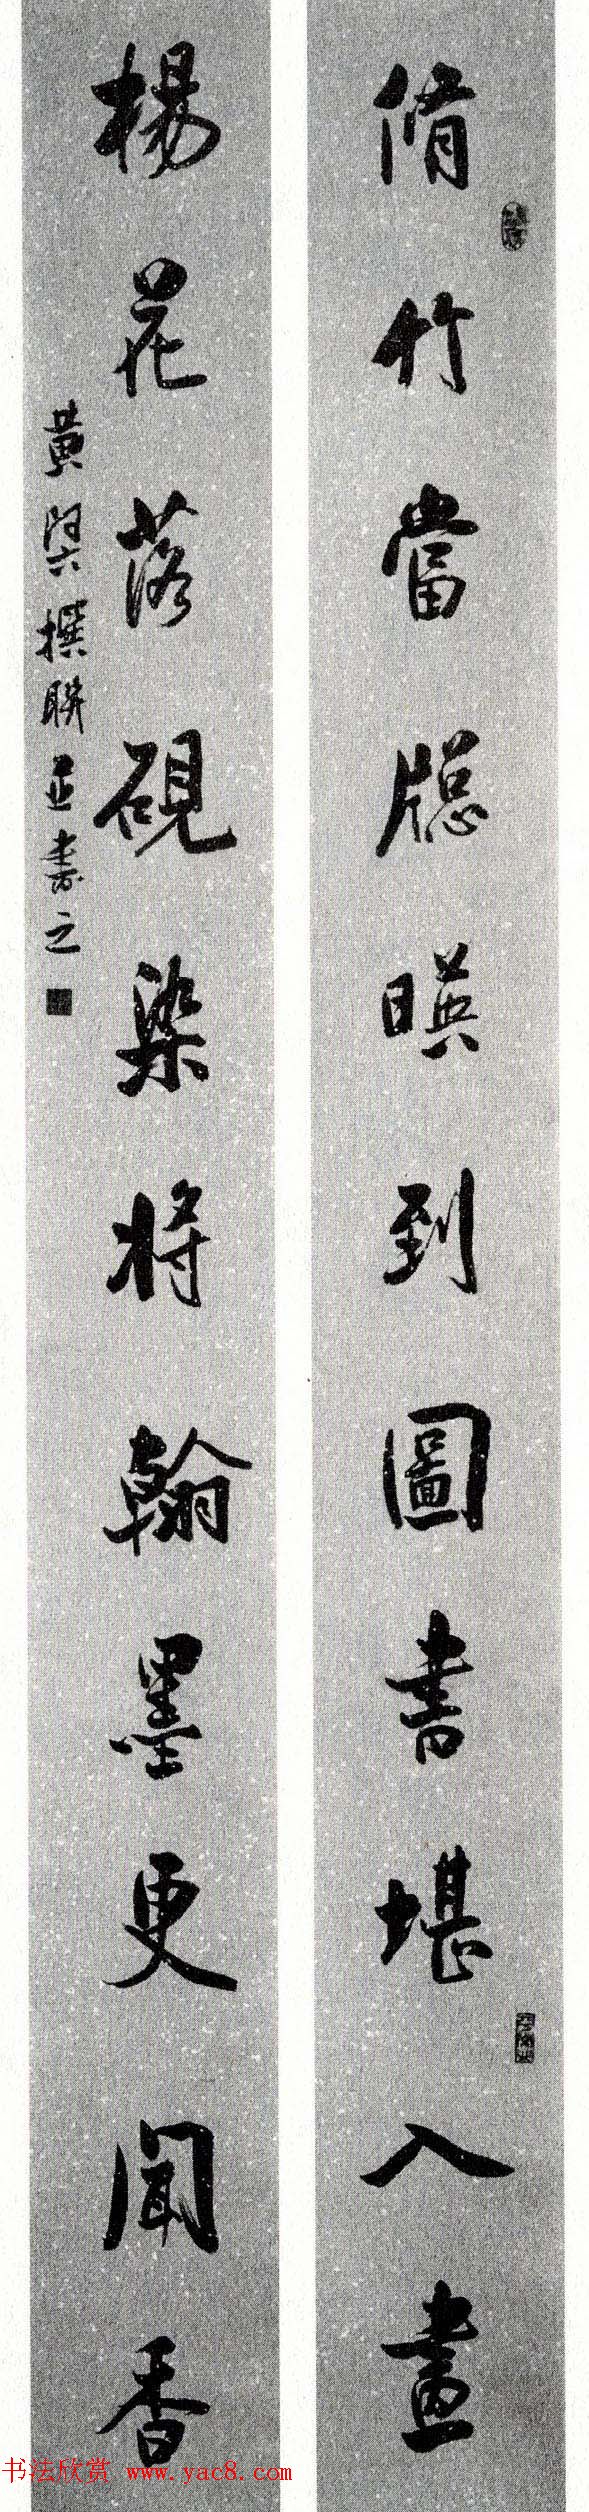 脩竹當牕暎到圖書堪入畫
楊花落硯染將翰墨更聞香
黃撰聯並書之
书法欣赏 www.yac8.com